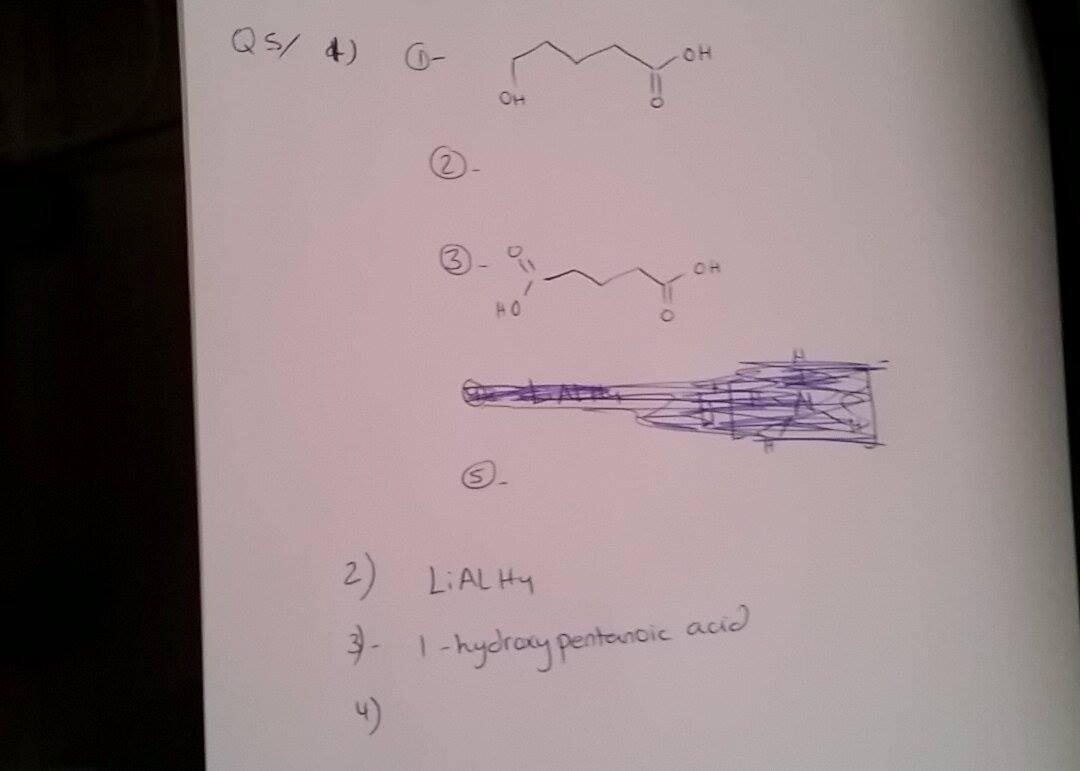 Q5/ 1) ①-
OH
O
OH
②-
③-
O
HO
OH
O
⑤-
2) LiALH4
3)- 1-hydroxypentanoic acid
4)